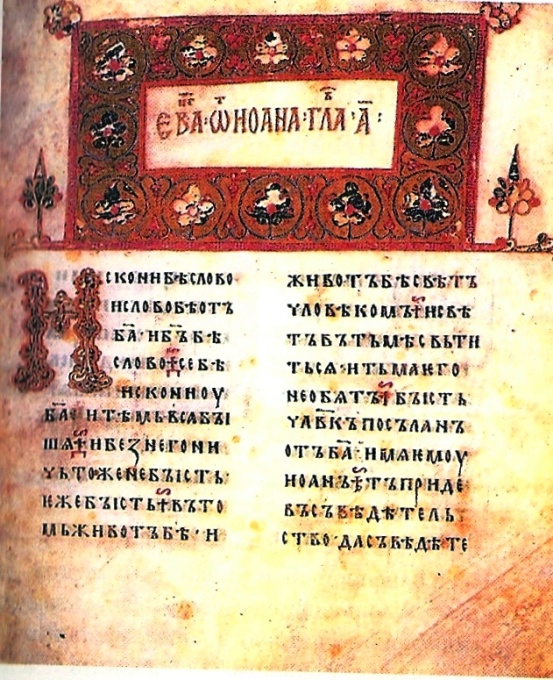 ЕВА҃·Ѿ ИОАНА·ГЛА҃·А҃:
ИСКОНИ БѢ СЛОВО
И СЛОВО БѢ ОТЪ
БА҃ И БЪ҃ БѢ
СЛОВО СЕ БѢ
ИСКОНИ ОУ
БА҃ И ТѢМЬ ВСА БЫ
ШѦ И БЕЗ НЕГО НИ
ЧЬТОЖЕ НЕ БЫСТЬ
ЕЖЕ БЫСТЬ ВЪ ТО
МЬ ЖИВОТЪ БѢ · И
ЖИВОТЪ БѢ СВѢТЪ
ЧЛОВѢКОМЪ И СВѢ
ТЪ ВЪ ТЬМѢ СВЬТИ
ТЬСѦ И ТЬМА ЕГО
НЕ ОБѦТЪ БЫСТЬ
ЧЛВ҃КЪ ПОСЪЛАНЪ
ОТЪ БА҃ ИМѦ ЕМОУ
ИОАНЪ ТЪ ПРИДЕ
ВЪ СЪВѢДѢТЕЛЬ
СТВО · ДА СЪВѢДѢТЕ